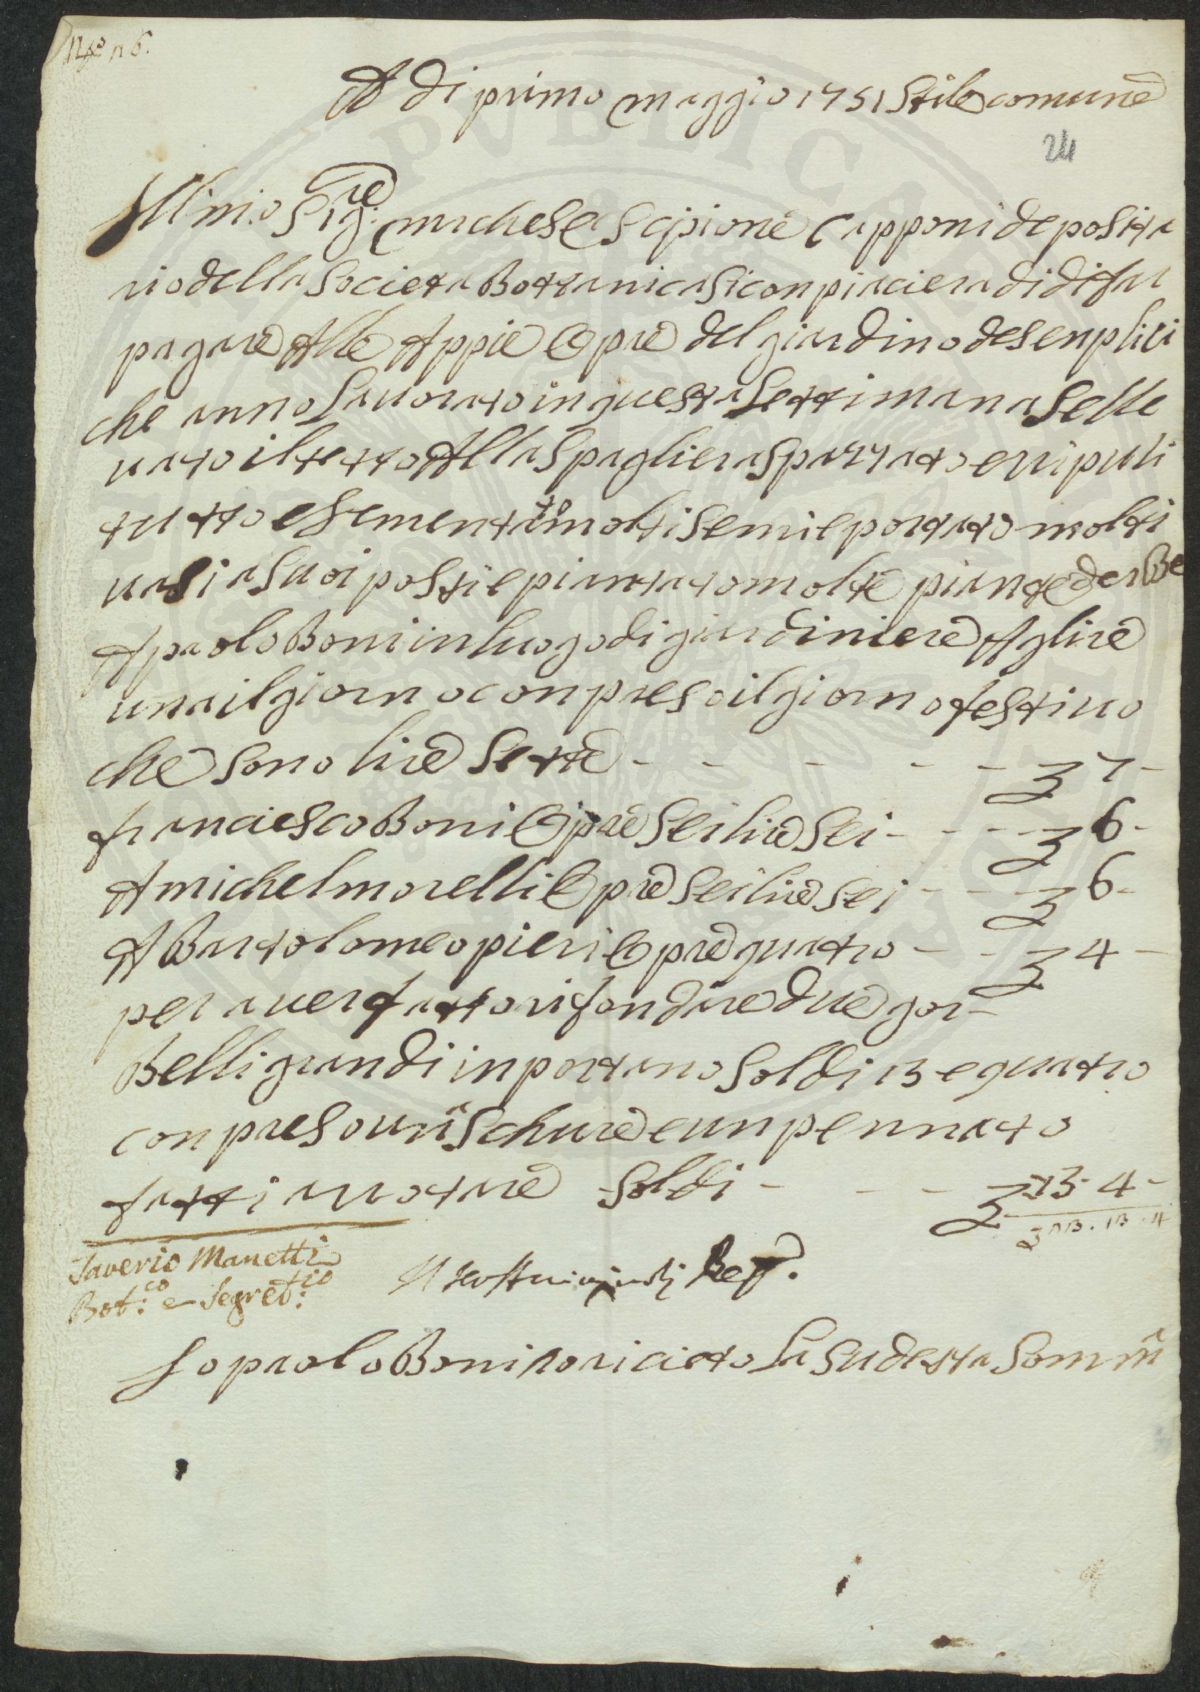 N.o 16.
A dì primo maggio 1751 Stile comune
24
Ill.mio Sig.re marchese Scipione Capponi deposita
rio della Societa Bottanica si conpiaciera di di far
pagare Alle Appie Opre del giardino de senplici
che anno Lavorato in questa Settimana Selle
vato il tetto Alla Spagliera spazzato e ripuli
tutto e sementato molti semi e portato molti
vasi a suoi posti e piantato molte piante ed erbe
A paolo Boni in luogo di giardiniere A glire
una il giorno conpreso il giorno festivo
che sono lire sette - - - - - 7 -
franciesco Boni Opre sei lire sei - - - 6 -
A michel morelli Opre sei lire sei - - - 6 -
A Bartolomeo pieri Opre quatro - - - 4 -
per aver fatto rifondare due gor-
Belli grandi inportano soldi 13 e quatro
conpreso una schure e un pennato
fatti arotare soldi - - - - 13 - 4 -
23 . 13 . 4
Saverio Manetti
Bot.co e Segret.rio
Io paolo Boni o riciето La sudetta Somma